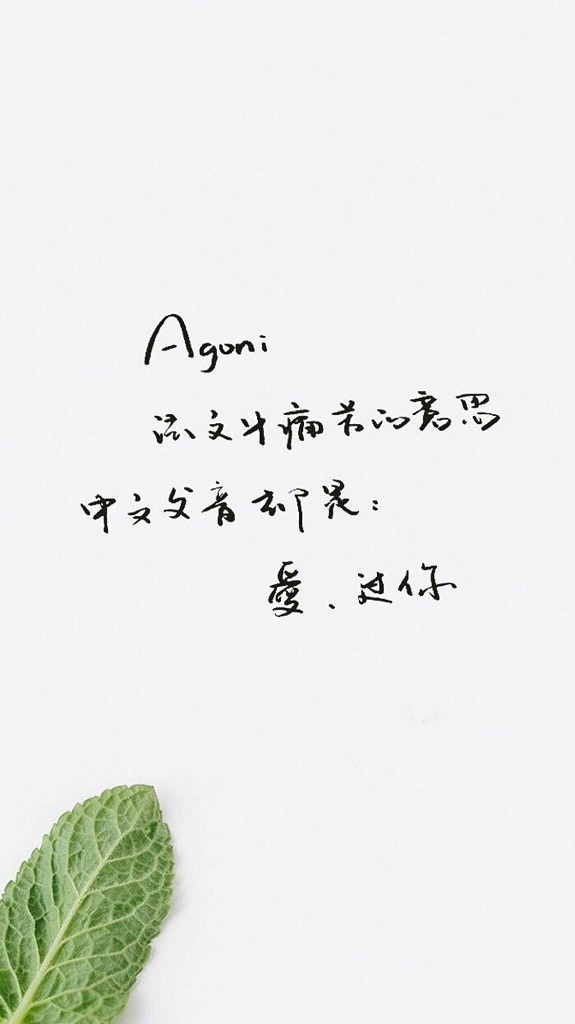 Agoni
法文中痛苦的意思
中文发音却是：
愛.过你